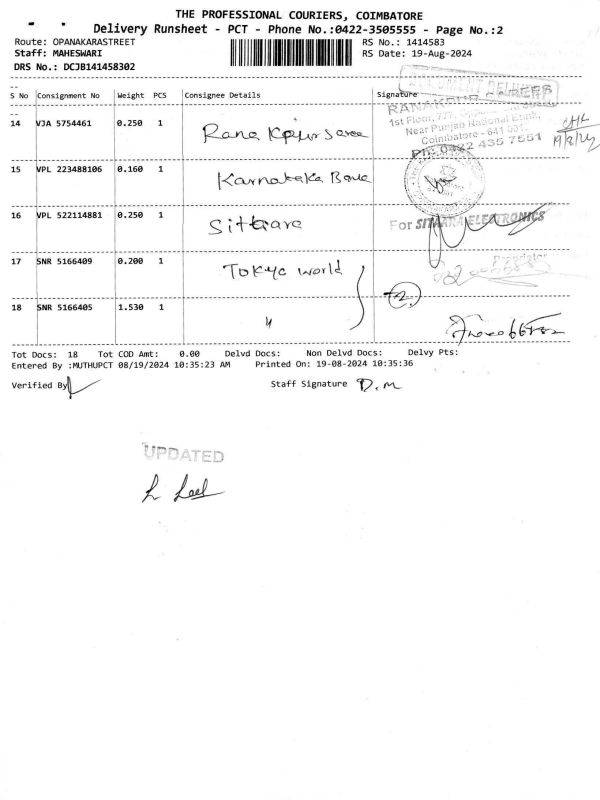 THE PROFESSIONAL COURIERS, COIMBATORE
Delivery Runsheet - PCT - Phone No.:0422-3505555 - Page No.:2
Route: OPANAKARASTREET
RS No.: 1414583
Staff: MAHESWARI
RS Date: 19-Aug-2024
DRS No.: DCJB141458302
S No Consignment No Weight PCS Consignee Details Signature
14 VJA 5754461 0.250 1
RANAKPUR
1st Floor, 777,
Near Punjab National Bank,
Coimbatore - 641 001.
Ph:0422 435 7551
19/8/24
15 VPL 223488106 0.160 1 Karnataka Bank
16 VPL 522114881 0.250 1 Sittara
For SITARA ELECTRONICS
Proprietor
17 SNR 5166409 0.200 1 Tokyo World
18 SNR 5166405 1.530 1 "
Tot Docs: 18 Tot COD Amt: 0.00 Delvd Docs: Non Delvd Docs: Delvy Pts:
Entered By :MUTHUPCT 08/19/2024 10:35:23 AM Printed On: 19-08-2024 10:35:36
Verified By
Staff Signature D.M
UPDATED